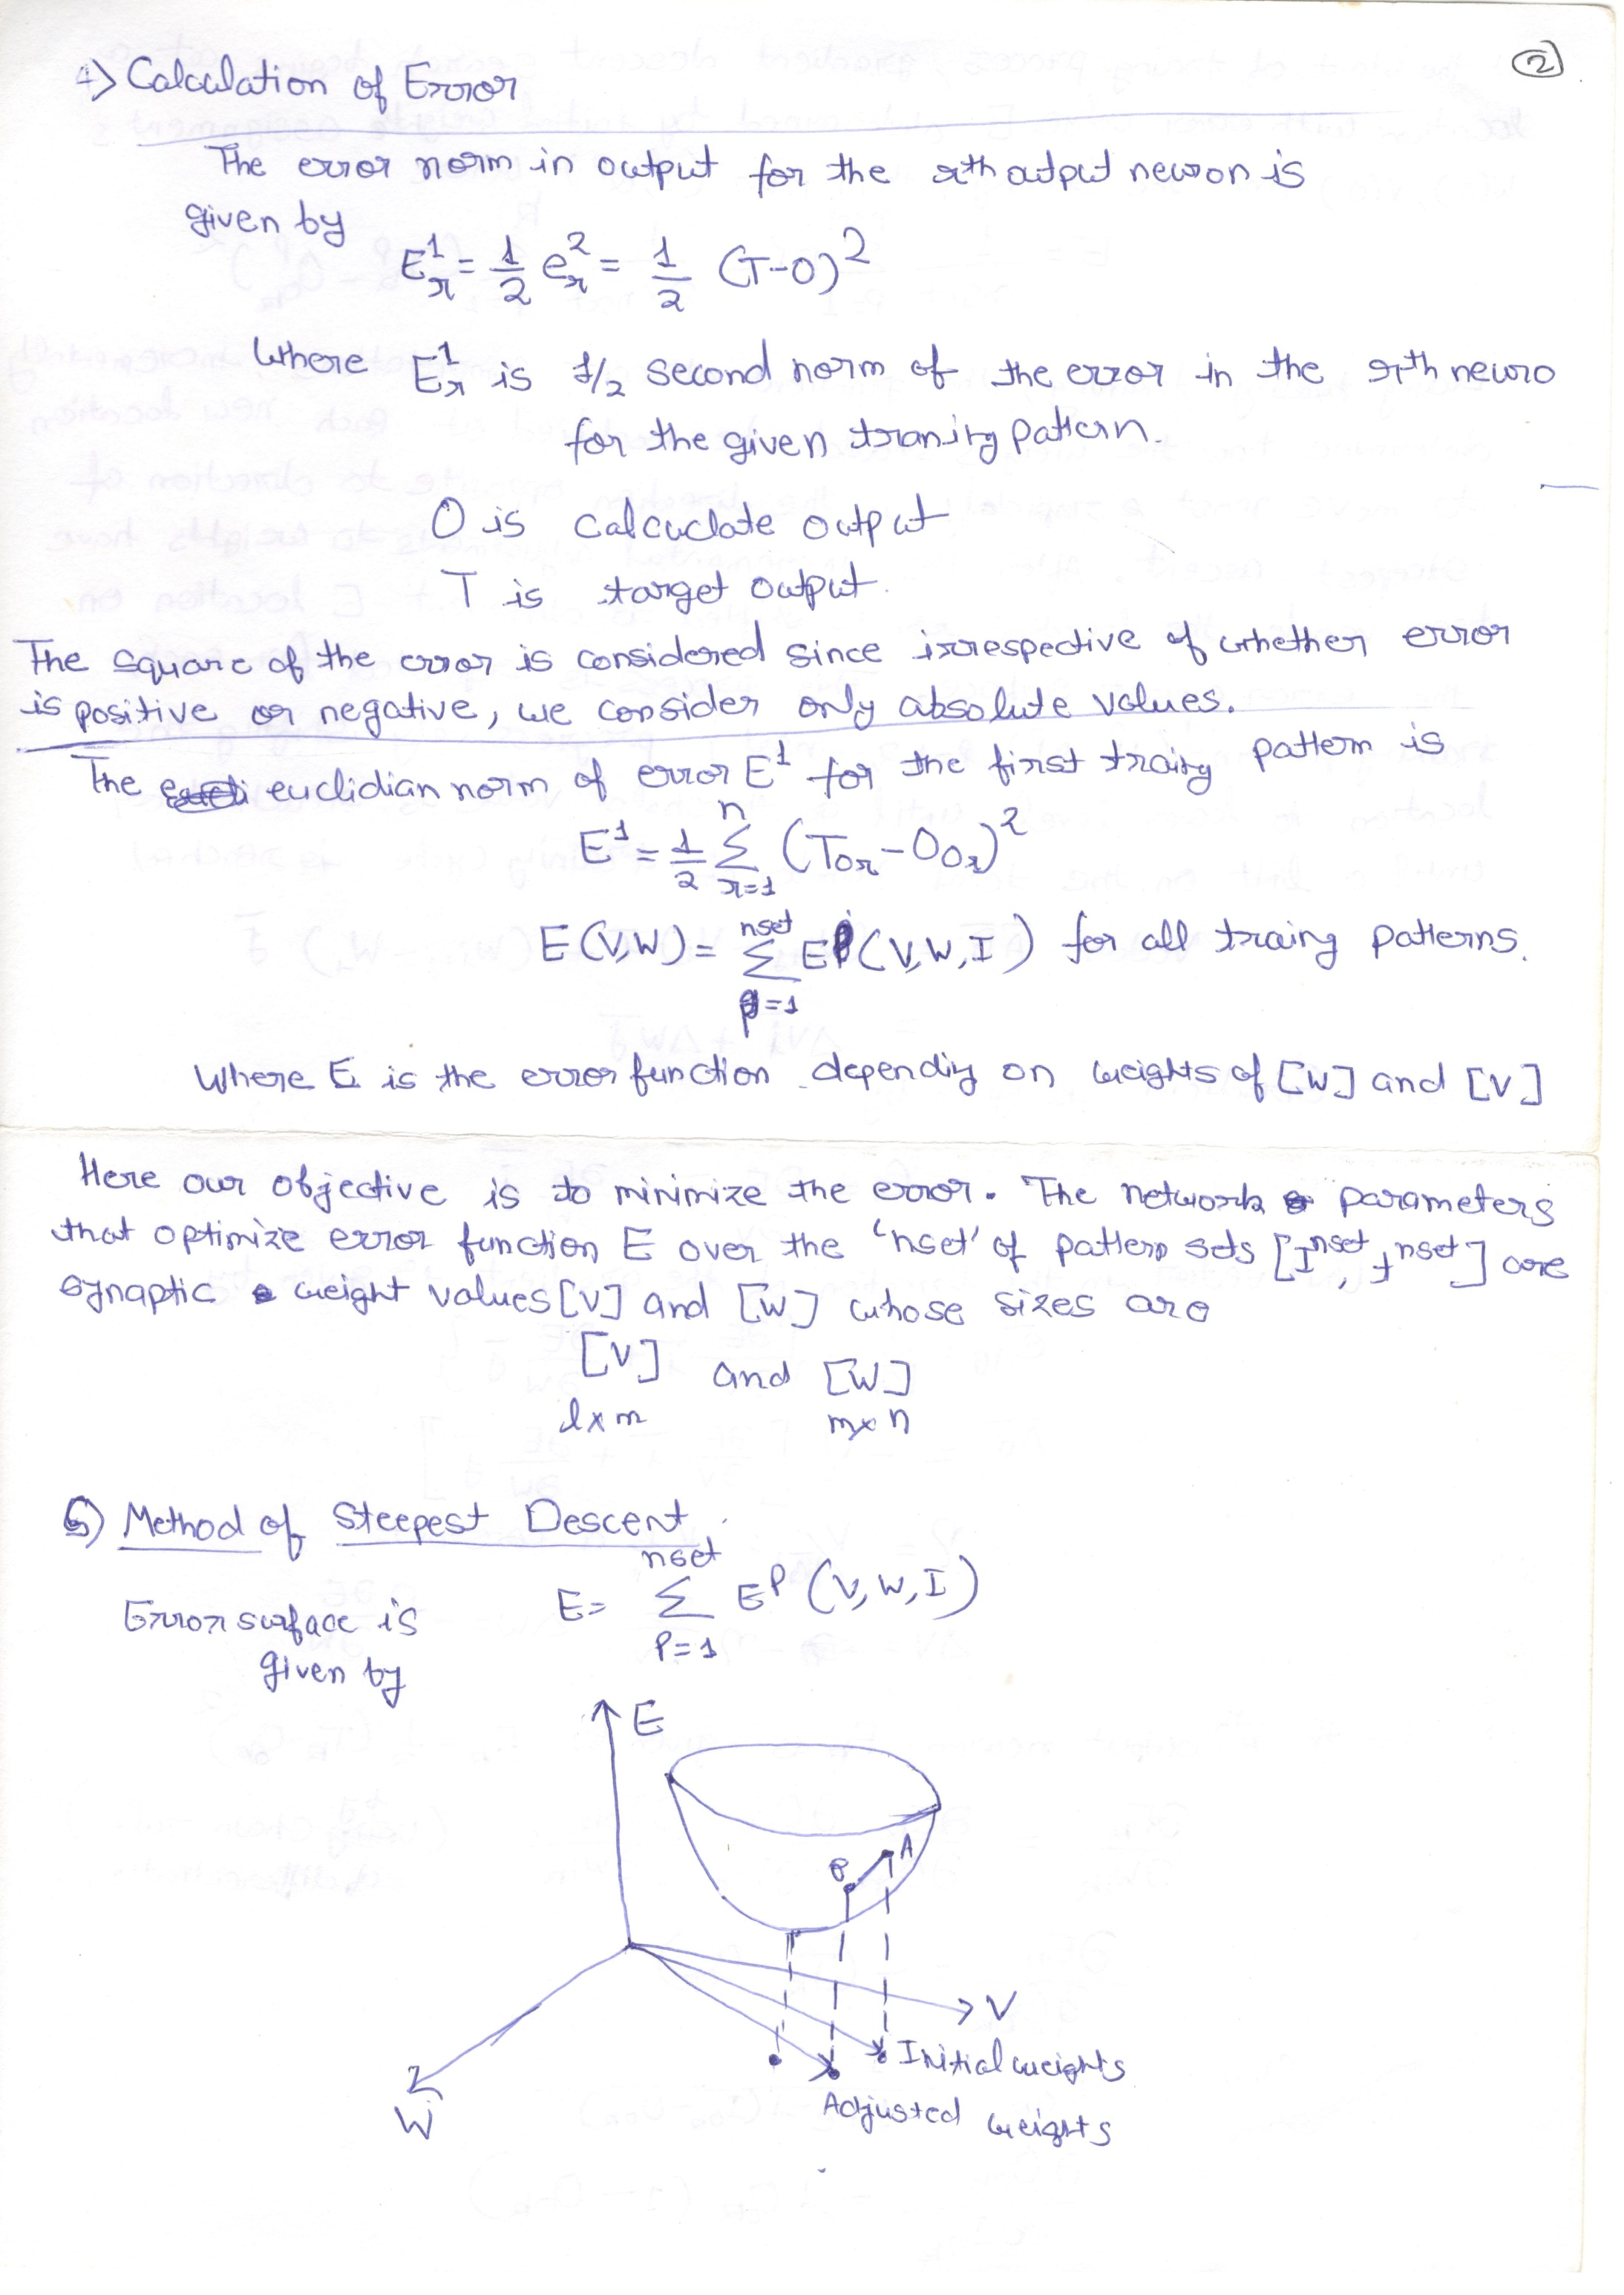 ②
4) Calculation of Error
The error norm in output for the rth output neuron is
given by
E¹r = 1/2 e²r = 1/2 (T-O)²
Where E¹r is 1/2 second norm of the error in the rth neuro
for the given traning pattern.
O is calcuclate output
T is target output.
The square of the error is considered since irrespective of whether error
is positive or negative, we consider only absolute values.
The euclidian norm of error E¹ for the first traing pattern is
E¹ = 1/2 Σ (TOr - OOr)²
n
r=1
E(V,W) = Σ EP(V,W,I) for all traing patterns.
nset
p=1
Where E is the error function depending on weights of [W] and [V]
Here our objective is to minimize the error. The network parameters
that optimize error function E over the 'nset' of pattern sets [I^nset, t^nset] are
synaptic weight values [V] and [W] whose sizes are
[V] and [W]
l×m m×n
5) Method of Steepest Descent.
nset
Error surface is E= Σ E^P (V,W,I)
given by P=1
E
A
B
V
Initial weights
W
Adjusted weights